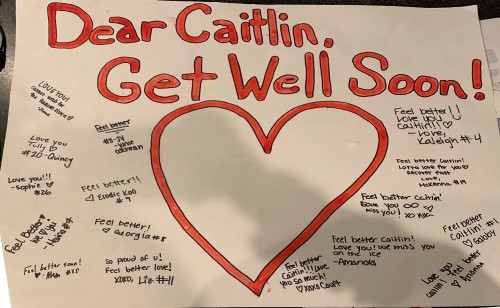 Dear Caitlin,
Get Well Soon!
LOVE YOU!
Love you
Tolly ♡
#20-Quincy
Love you!!!
-Sophie ♡
#26
Feel Better!
We ♡ you!
Feel better soon!
Feel better
#3-JV
-June
Feel better!!
♡ Elodie Koo
#9
Feel better!
♡ Georgia #8
So proud of u!
Feel better love!
XOXO, Liz #11
Feel better
Caitlin!!! Love
you so much!
♡ XOXO Court
Feel better!!
Love you
Caitlin!! ♡
-Love,
Kaleigh #4
Feel better Caitlin!
Lotta love for you
Recover fast
Love,
McKenna #19
Feel better Caitlin!
Love you
miss you!
Feel better Caitlin!
Love you! we miss you
on the ice
-Amanda
Feel better
Caitlin! #1
♡ Gabby
Love you
Caitlin! feel better